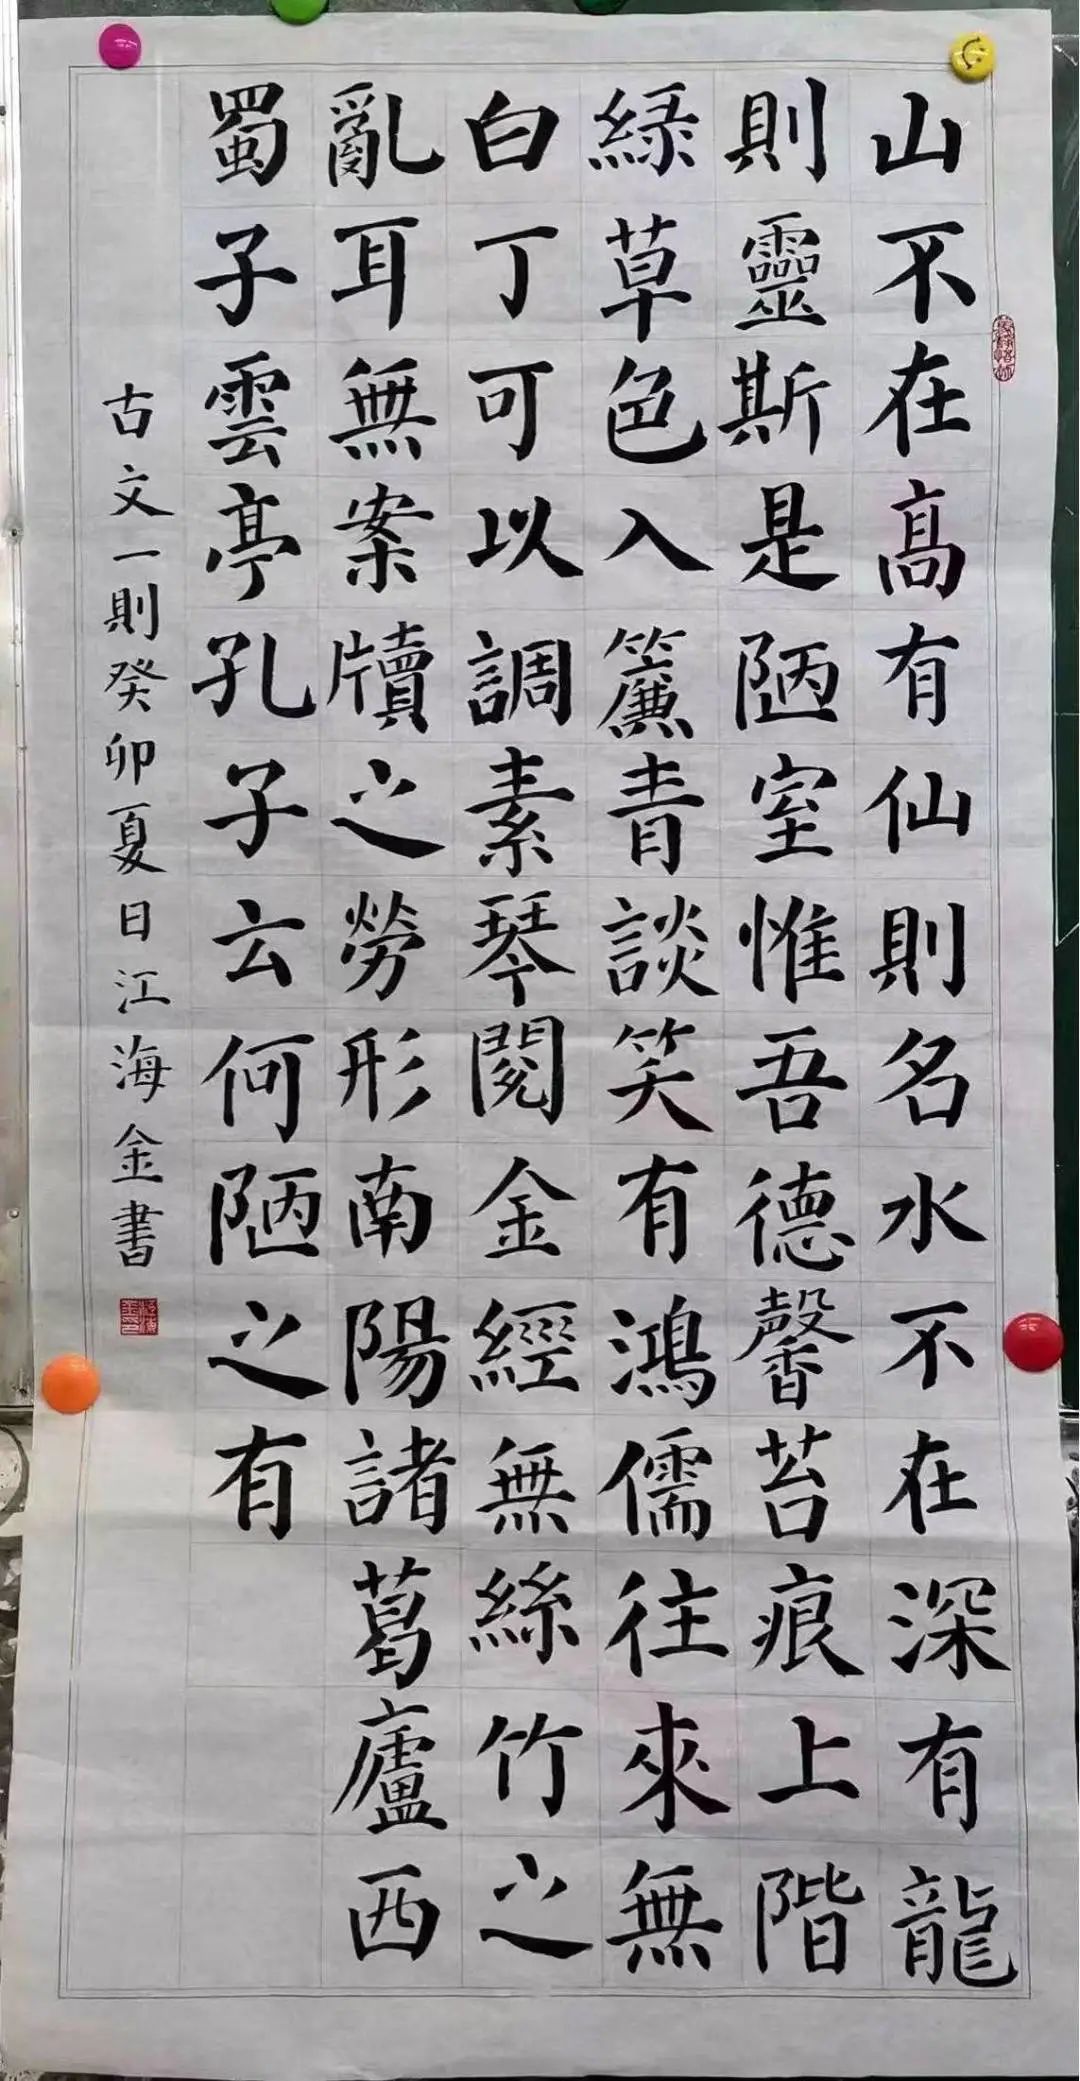 山不在高有仙則名水不在深有龍
則靈斯是陋室惟吾德馨苔痕上階
綠草色入簾青談笑有鴻儒往來無
白丁可以調素琴閱金經無絲竹之
亂耳無案牘之勞形南陽諸葛廬西
蜀子雲亭孔子云何陋之有
古文一則癸卯夏日江海金書